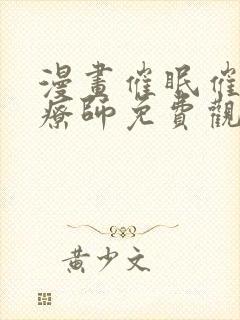 漫畫催眠催
療師免費觀
黃少文